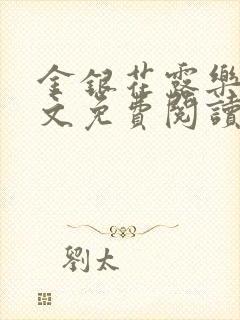 金銀花露樂
文免費閱讀
劉太